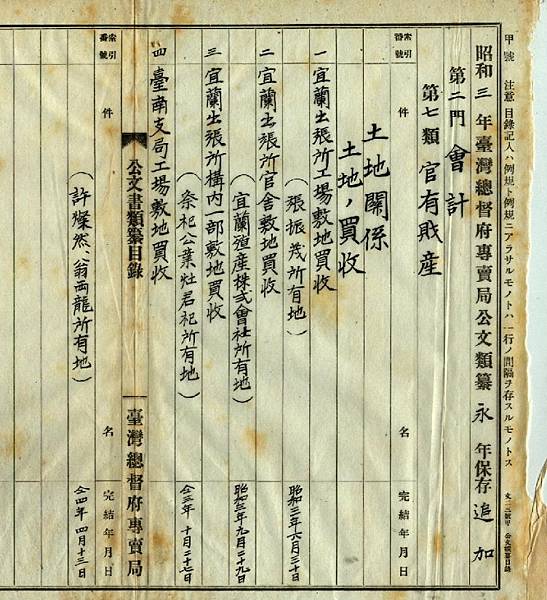 甲號 注意 目錄記入ハ例規ト例規ニアラサルモノトハ一行ノ間隔ヲ存スルモノトス
昭和三年臺灣總督府專賣局公文類纂 永年保存 追加
第二門 會計
第七類 官有財産
索引番號 件名 完結年月日
土地關係
土地ノ買收
一 宜蘭出張所工場敷地買收
(張振茂所有地) 昭和三年六月三十日
二 宜蘭出張所官舍敷地買收
(宜蘭殖産株式會社所有地) 昭和三年九月二十九日
三 宜蘭出張所構内一部敷地買收
(祭祀公業灶君祀所有地) 仝三年十月二十七日
四 臺南支局工場敷地買收
公文書類纂目錄 臺灣總督府專賣局
索引番號 件名 完結年月日
(許燦然、翁両龍所有地) 仝四年四月十三日